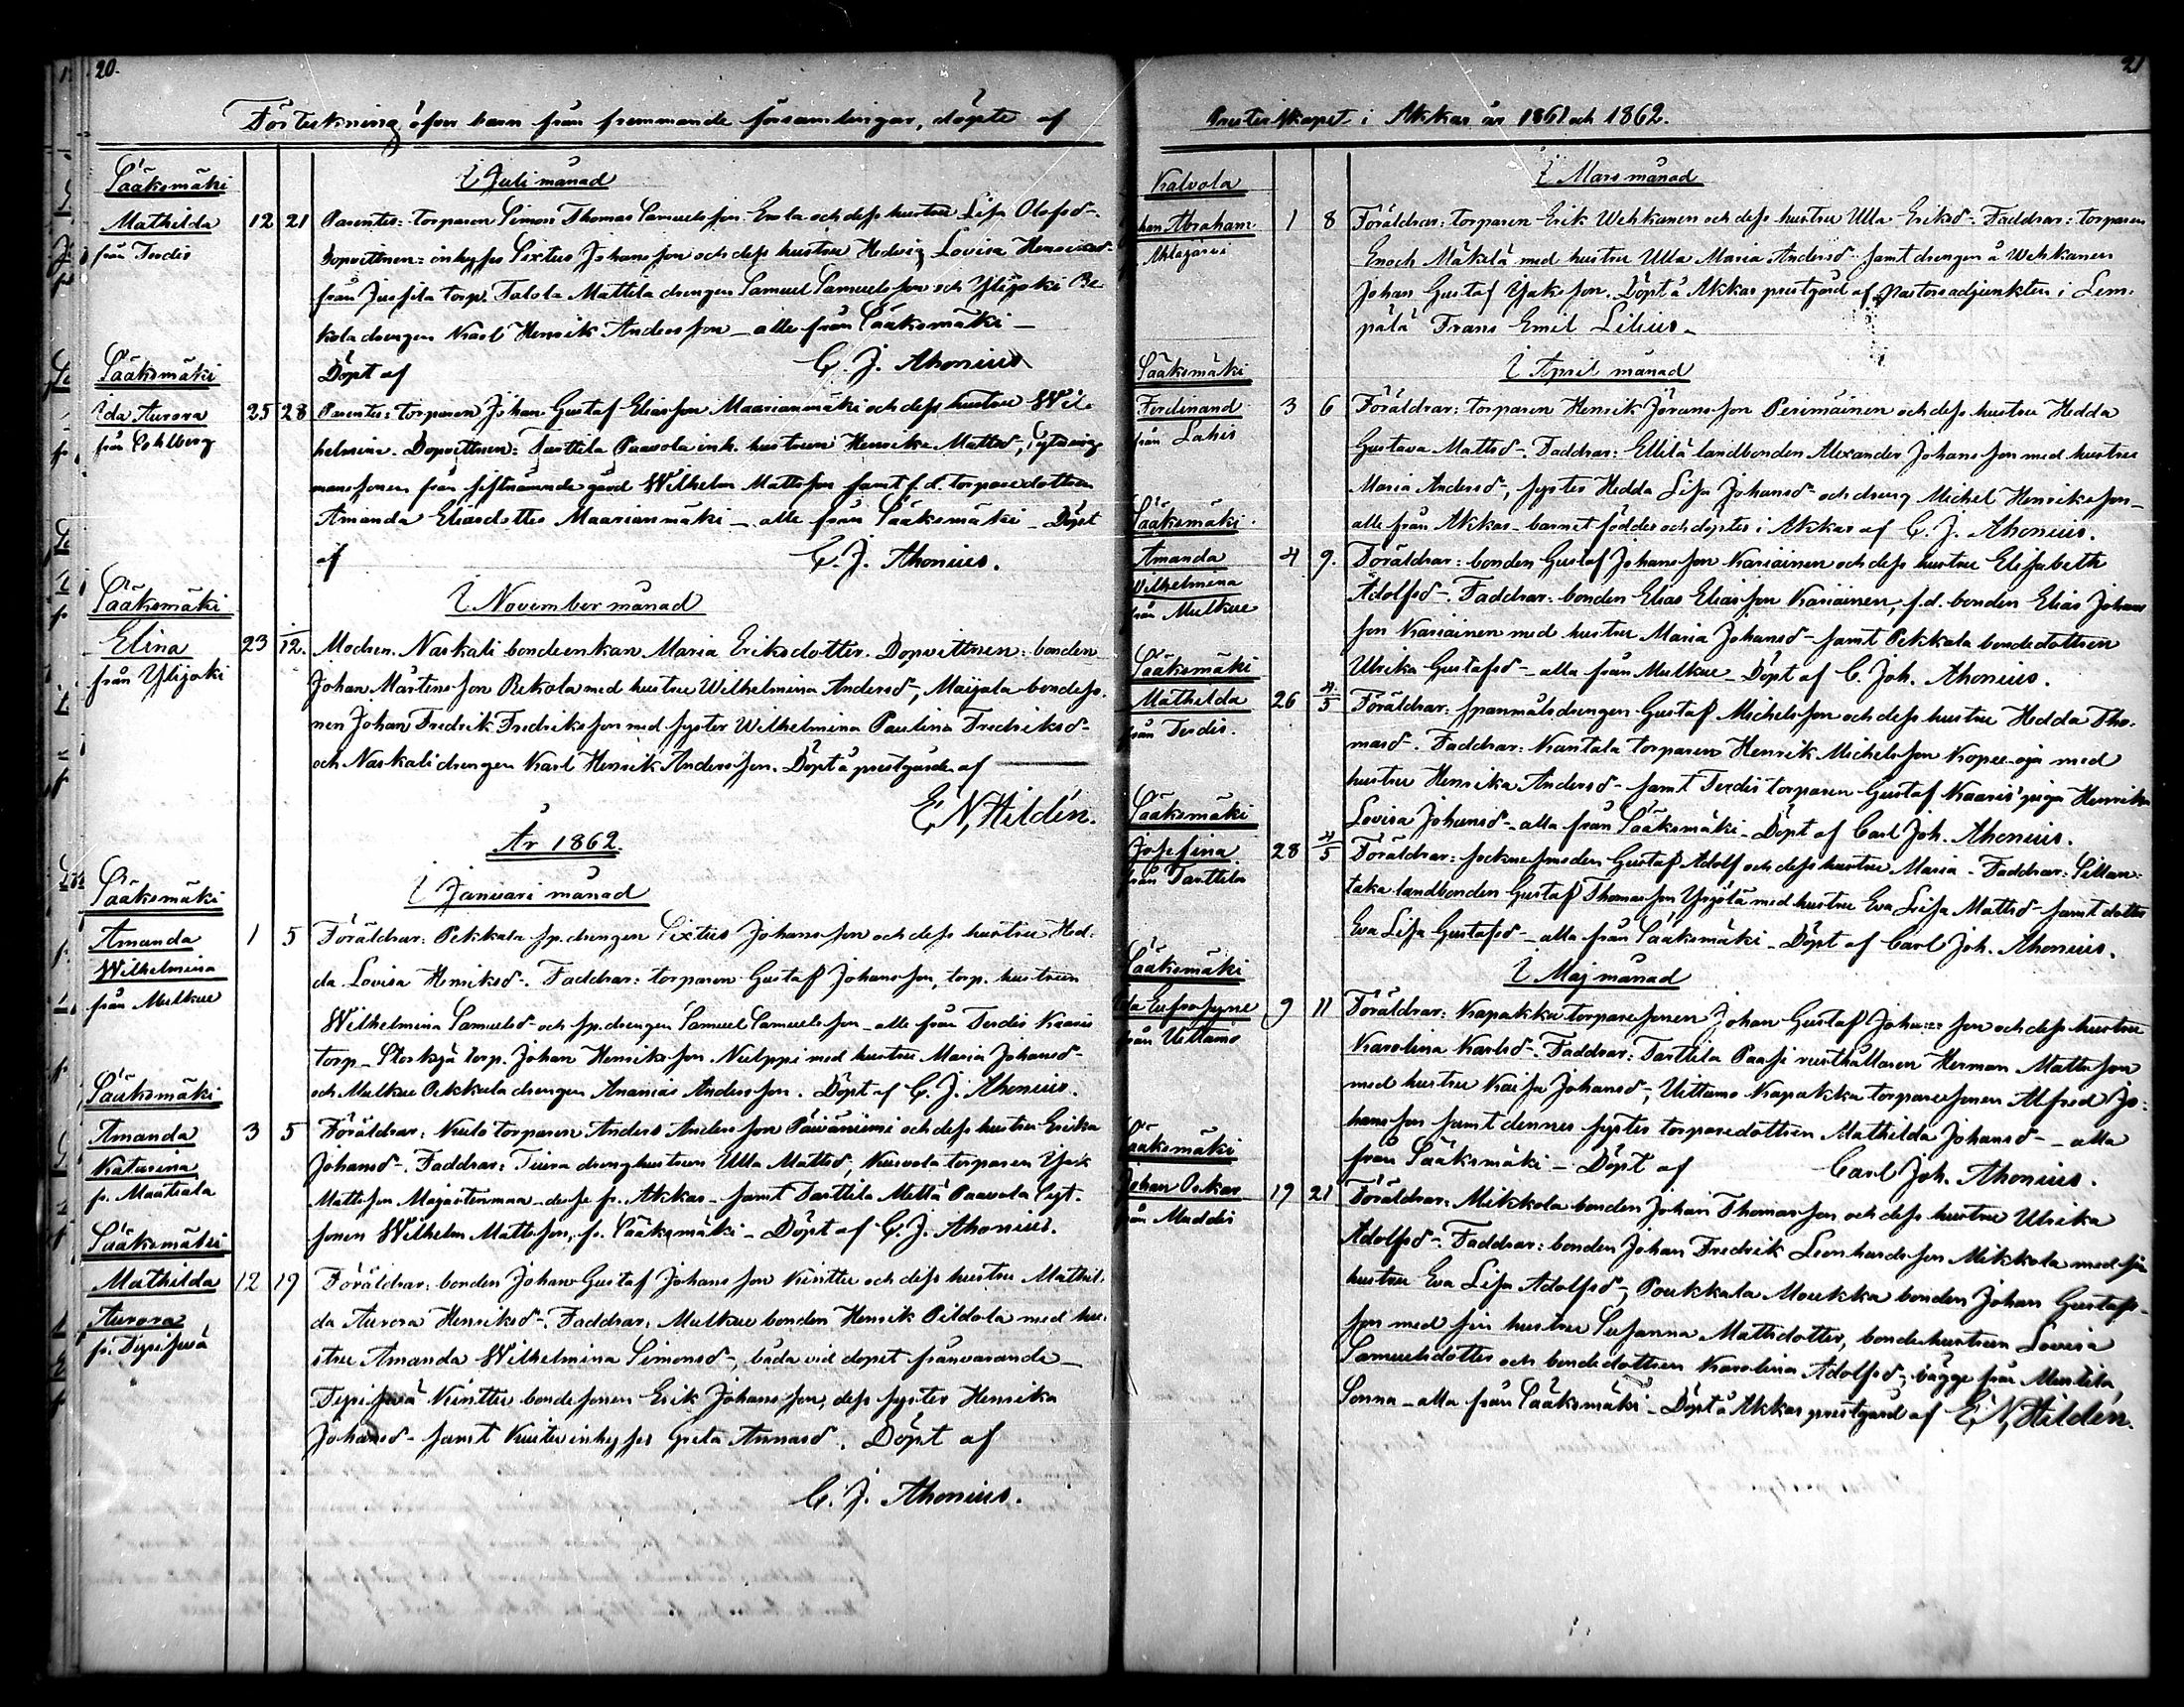 20.
Förteckning öfver barn från främmande församlingar, döpte af
I Juli månad
Sääksmäki
Mathilda 12 21 Parentes: torparen Simon Thomas Samuelsson Erola och dess hustru Lisa Olofsd-.
från Terdis Dopvittnen: inhyses Sixtus Johansson och dess hustru Hedvig Lovisa Henriksd-
från Jussila torp. Talola Mattila drengen Samuel Samuelsson och Ylijoki Re-
kola drengen Karl Henrik Andersson - alle från Sääksmäki -
Döpt af C. J. Ahonius
Sääksmäki
Ida Aurora 25 28 Parentes: torparen Johan Gustaf Eliasson Maarianmäki och dess hustru Wil-
från Cohlberg helmina. Dopvittnen: Tarttila Paavola inh. hustrun Henrika Mattsd-, sytning
mans sonen från sistnämnde gård Wilhelm Mattsson samt f.d. torparedottren
Amanda Eliasdotter Maarianmäki - alle från Sääksmäki - Döpt
af C. J. Ahonius.
I November månad
Sääksmäki
Elina 23 /12. Modren. Naskali bondeenkan Maria Eriksdotter. Dopvittnen: bonden
från Ylijoki Johan Mårtensson Rekola med hustru Wilhelmina Andersd-, Maijala bondeso-
nen Johan Fredrik Fredriksson med syster Wilhelmina Paulina Fredriksd-
och Naskali drengen Karl Henrik Andersson. Döpt å prestgården af
E. N. Hildén.
År 1862.
I Januari månad
Sääksmäki
Amanda 1 5 Föräldrar: Pekkala sp.drengen Sixtus Johansson och dess hustru Hed-
Wilhelmina da Lovisa Henriksd-. Faddrar: torparen Gustaf Johansson, torp. hustrun
från Mulkue Wilhelmina Samuelsd- och sp.drengen Samuel Samuelsson - alle från Terdis Kaaris
torp - Storksjä torp. Johan Henriksson Nulppi med hustru Maria Johansd-
och Mulkue Pekkala drengen Ananias Andersson. Döpt af C. J. Ahonius.
Sääksmäki
Amanda 3 5 Föräldrar: Keulo torparen Anders Andersson Päiväniemi och dess hustru Erika
Katarina Johansd-. Faddrar: Tiura drenghustrun Ulla Mattsd, Kurvola torparen Isak
fr. Maatiala Mattsson Majastenmaa - desse fr. Akkas - samt Tarttila Mellä Paavola Syt.
sonen Wilhelm Mattsson, fr. Sääksmäki - Döpt af C. J. Ahonius.
Sääksmäki
Mathilda 12 19 Föräldrar: bonden Johan Gustaf Johansson Kinttu och dess hustru Mathil-
Aurora da Aurora Henriksd-. Faddrar: Mulkue bonden Henrik Pildola med hu-
stru Amanda Wilhelmina Simonsd-, båda vid dopet frånvarande -
Kinttu bondesonen Erik Johansson, dess syster Henrika
Johansd- samt Kinttu inhyses Greta Annasd. Döpt af
C. J. Ahonius.
21
Presterskapet i Akkas år 1861 och 1862.
I Mars månad
Kalvola
han Abraham 1 8 Föräldrar: torparen Erik Wehkanen och dess hustru Ulla Eriksd-. Faddrar: torparen
Ahlajärvi Enoch Mäkelä med hustru Ulla Maria Andersd- samt drengen å Wehkanen
Johan Gustaf Isaksson. Döpt å Akkas prestgård af Pastorsadjunkten i Lem-
pälä Frans Emil Lilius.
I April månad
Sääksmäki
Ferdinand 3 6 Föräldrar: torparen Henrik Göransson Perimäinen och dess hustru Hedda
från Lahis Gustava Mattsd-. Faddrar: Ellilä landbonden Alexander Johansson med hustru
Maria Andersd-, syster Hedda Lisa Johansd- och dreng Michel Henriksson -
alle från Akkas - barnet föddes och döptes i Akkas af C. J. Ahonius.
Sääksmäki
Amanda 4 9. Föräldrar: bonden Gustaf Johansson Kariainen och dess hustru Elisabeth
Wilhelmina Adolfsd-. Faddrar: bonden Elias Eliasson Kariainen, f.d. bonden Elias Johans
från Mulkue son Kariainen med hustru Maria Johansd- samt Pekkala bondedottren
Ulrika Gustafsd- - alla från Mulkue - Döpt af C. Joh. Ahonius.
Sääksmäki
Mathilda 26 4/5 Föräldrar: spanmålsdrengen Gustaf Michelsson och dess hustru Hedda Tho-
från Terdis. masd-. Faddrar: Kantala torparen Henrik Michelsson Kopee oja med
hustru Henrika Andersd- samt Terdis torparen Gustaf Kaaris' piga Henrika
Lovisa Johansd- - alla från Sääksmäki - Döpt af Carl Joh. Ahonius.
Sääksmäki
Josefina 28 4/5 Föräldrar: sockne smeden Gustaf Adolf och dess hustru Maria - Faddrar: Sillan-
från Tarttila taka landbonden Gustaf Thomasson Yrjölä med hustru Eva Lisa Mattsd- samt dotter
Eva Lisa Gustafsd- - alla från Sääksmäki - Döpt af Carl Joh. Ahonius.
I Maj månad
Sääksmäki
Ida Eufrosyne 9 11 Föräldrar: Kapakka torparesonen Johan Gustaf Johansson och dess hustru
från Uittamo Karolina Karlsd-. Faddrar: Tarttila Paasi rusthållaren Herman Mattsson
med hustru Kaisa Johansd-, Uittamo Kapakka torparesonen Alfred Jo-
hansson samt dennes syster torparedottren Mathilda Johansd- - alla
från Sääksmäki - Döpt af Carl Joh. Ahonius.
Sääksmäki
Johan Oskar 19 21 Föräldrar: Mikkola bonden Johan Thomasson och dess hustru Ulrika
från Muddis Adolfsd-. Faddrar: bonden Johan Fredrik Leonhardsson Mikkola med sin
hustru Eva Lisa Adolfsd-, Poukkala Moukka bonden Johan Gustafs-
son med sin hustru Susanna Mattsdotter, bondehustrun Lovisa
Samuelsdotter och bondedottren Karolina Adolfsd-, bägge från Mustila,
Sonna - alla från Sääksmäki - Döpt å Akkas prestgård af E. N. Hildén.